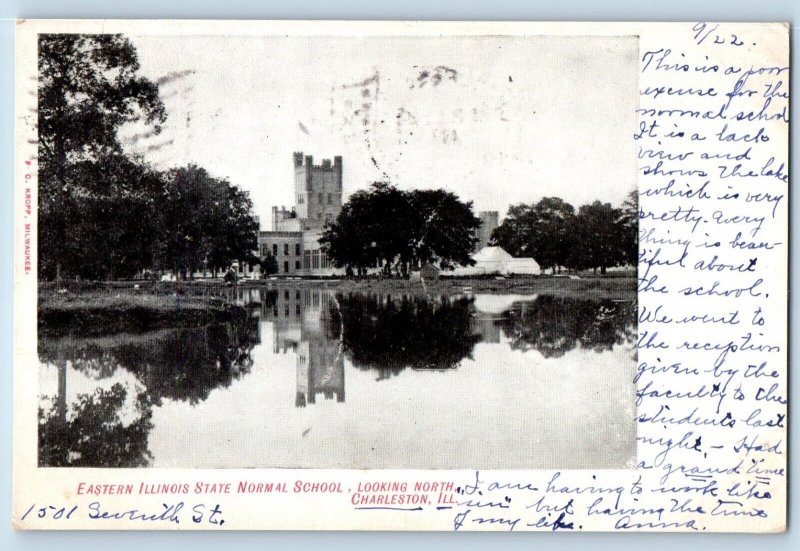 9/22.
This is a poor
excuse for the
normal school
It is a back
view and
shows the lake
which is very
pretty. Every
thing is beau-
tiful about
the school.
We went to
the reception
given by the
faculty to the
students last
night, - Had
a grand time
I am having to work like
"sin" but having the time
of my life. Anna.
F. C. KROPP, MILWAUKEE.
EASTERN ILLINOIS STATE NORMAL SCHOOL, LOOKING NORTH,
CHARLESTON, ILL.
1501 Seventh St.